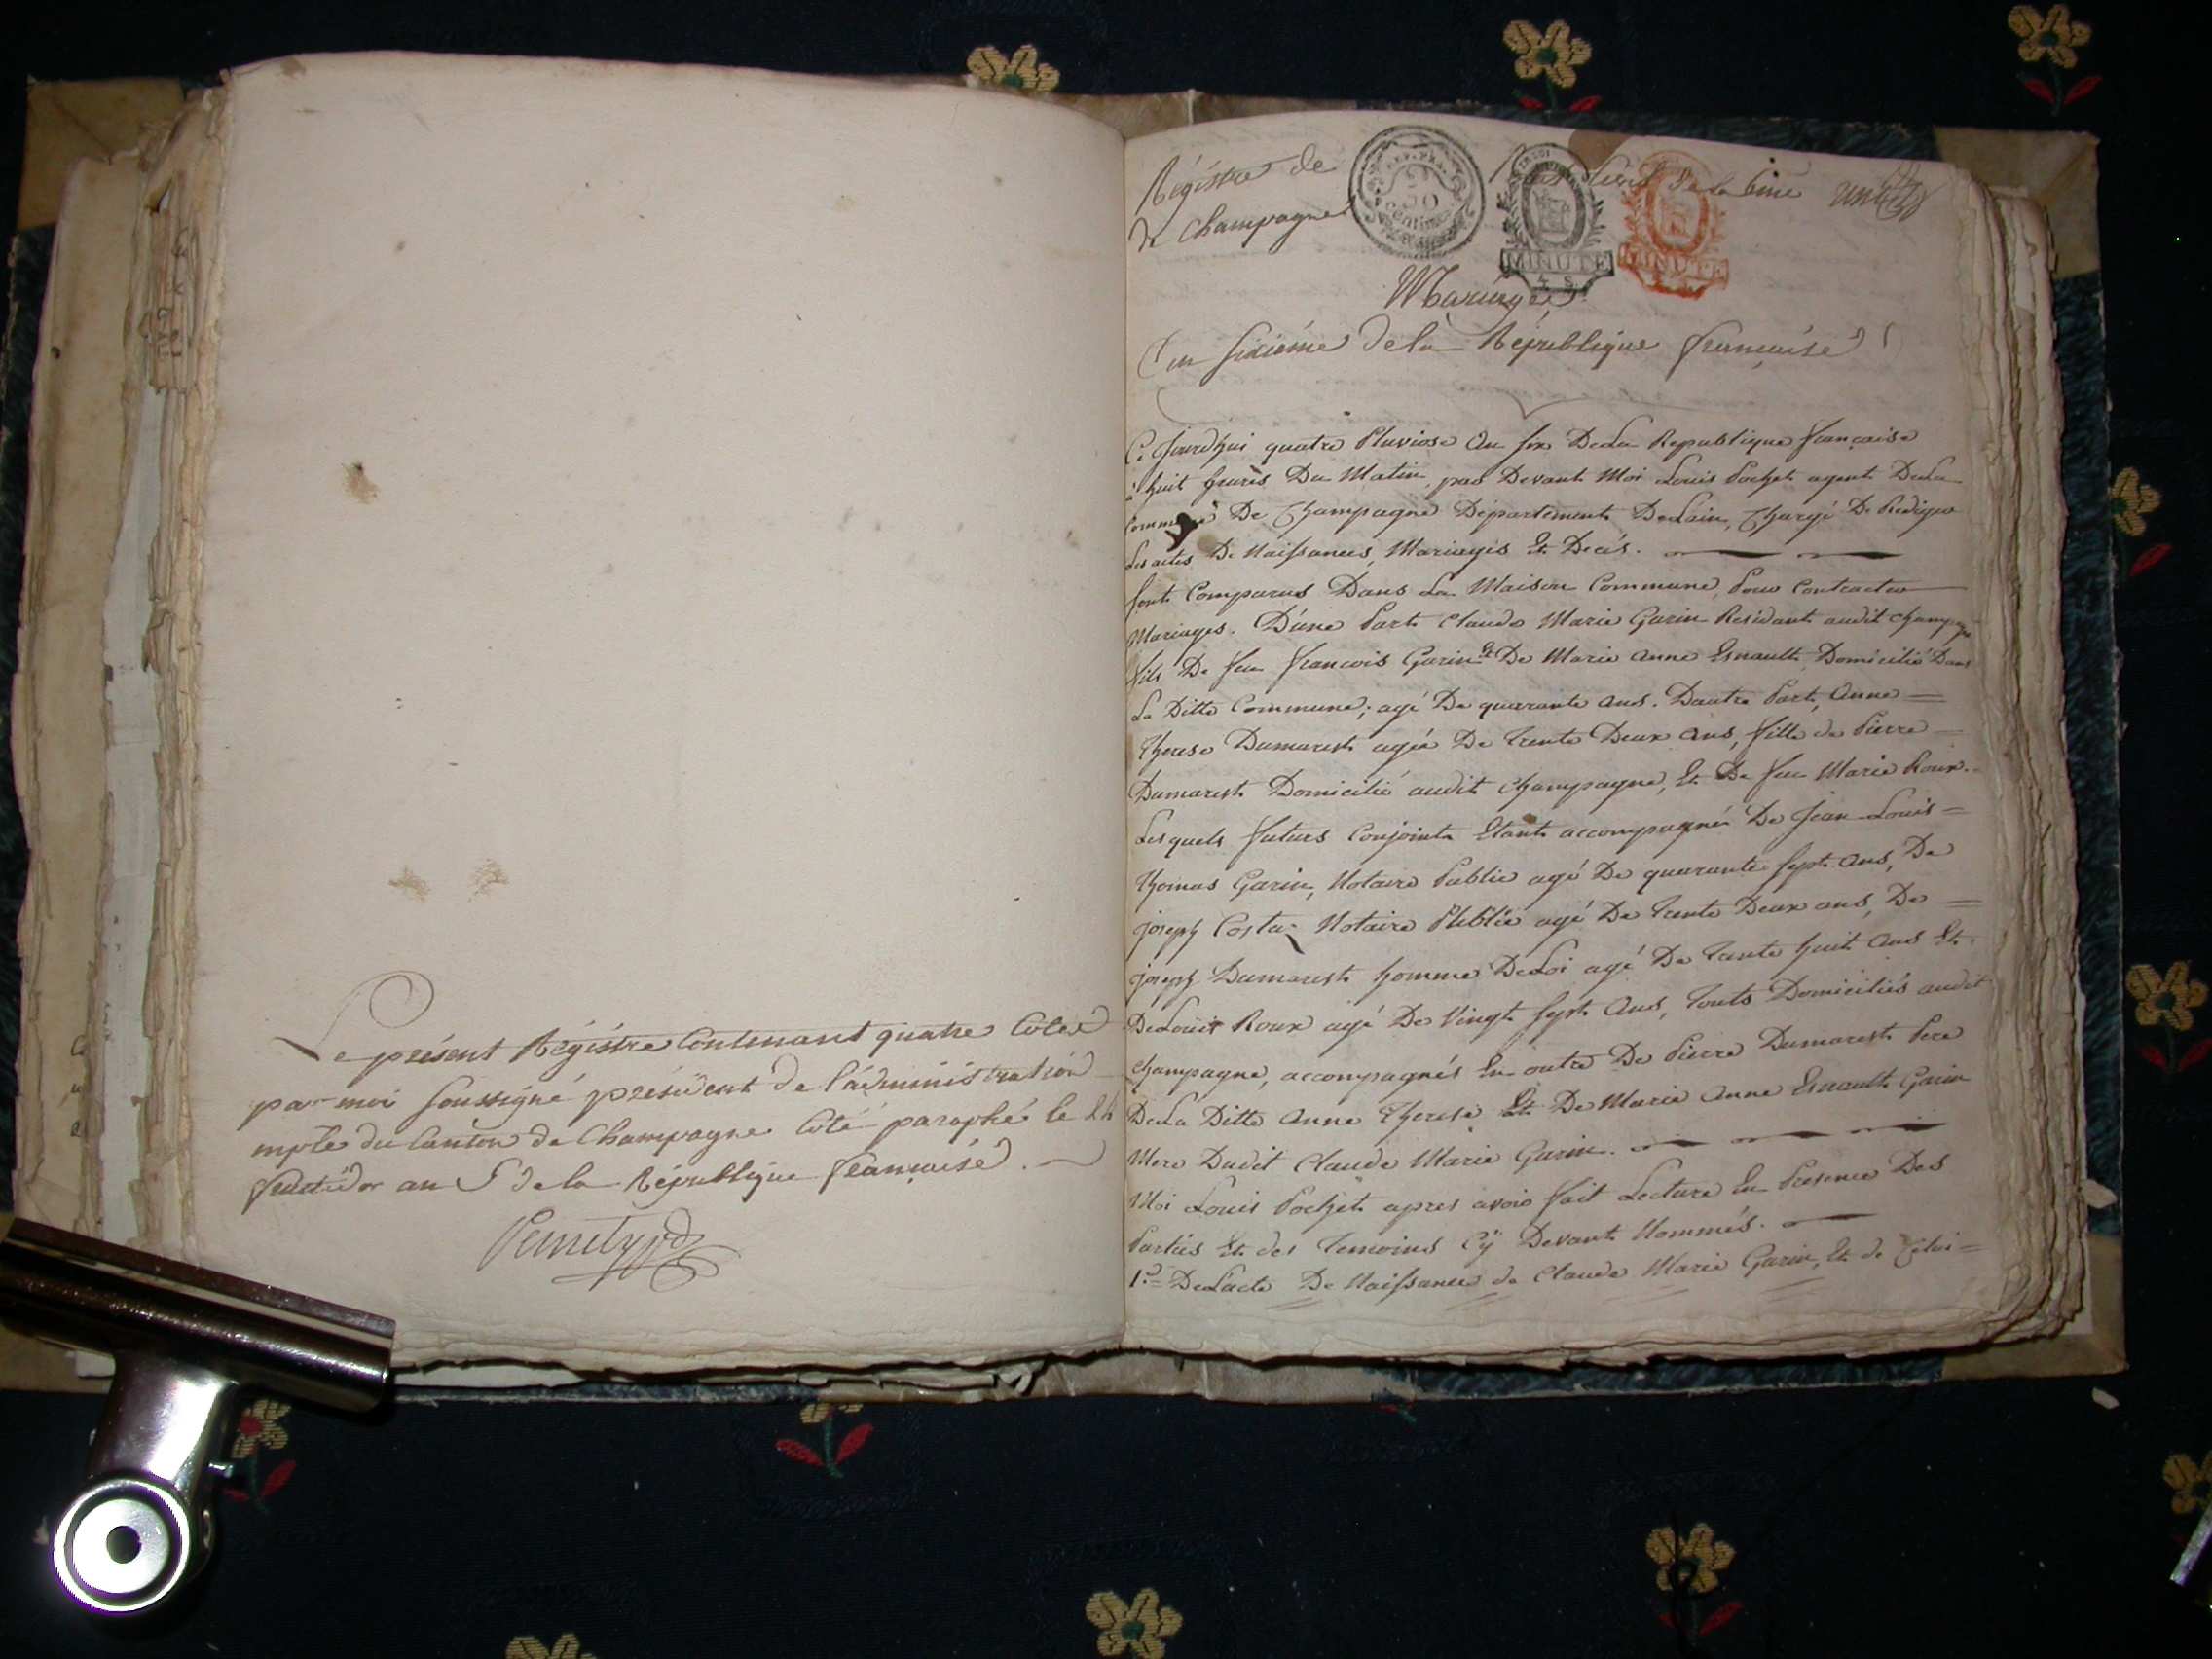 Le présent Régistre Contenant quatre Cotes
par moi soussigné présiedent de l'administration
mple du Canton de Champagne Coté paraphé le 24
fructidor an 5 de la République française.
Régistre de
de la Cme
de Champagne
50
centimes
MINUTE
MINUTE
Mariages
l'an sixième de la République française
Ce Jourdhui quatre Pluviose an six De La Republique française
à huit heures Du Matin, par Devant Moi Louis Pochet agent De La
Commune De Champagne Département De Lain, Chargé De Rediger
Les actes De Naissances, Mariages Et Decès.
Sont Comparus Dans La Maison Commune, Pour Contracter
Mariages. D'une Part Claude Marie Garin Residant audit Champagne
fils De feu francois Garin Et De Marie Anne Esnault, Domicilié Dans
La Ditte Commune; agé De quarante ans. Dautre Part, Anne
Therese Dumarest agée De Trente Deux ans, fille de Pierre
Dumarest Domicilié audit Champagne, Et De feu Marie Roux.
Les quels futurs Conjoints Etant accompagnés De Jean Louis
Thomas Garin, Notaire Public agé De quarante sept ans, De
joseph Costaz Notaire Public agé De Trente Deux ans, De
joseph Dumarest homme De Loi agé De Trante huit ans Et
De Louis Roux agé De Vingt sept ans, Touts Domiciliés audit
Champagne, accompagnés En outre De Pierre Dumarest Pere
De La Ditte Anne Therese Et De Marie Anne Esnault Garin
Mere Dudit Claude Marie Garin.
Moi Louis Pochet apres avoir fait Lecture En Presence Des
Parties Et des Temoins Cÿ Devant Nommés.
1.º De L'acte De Naissance de Claude Marie Garin, Et de Celui